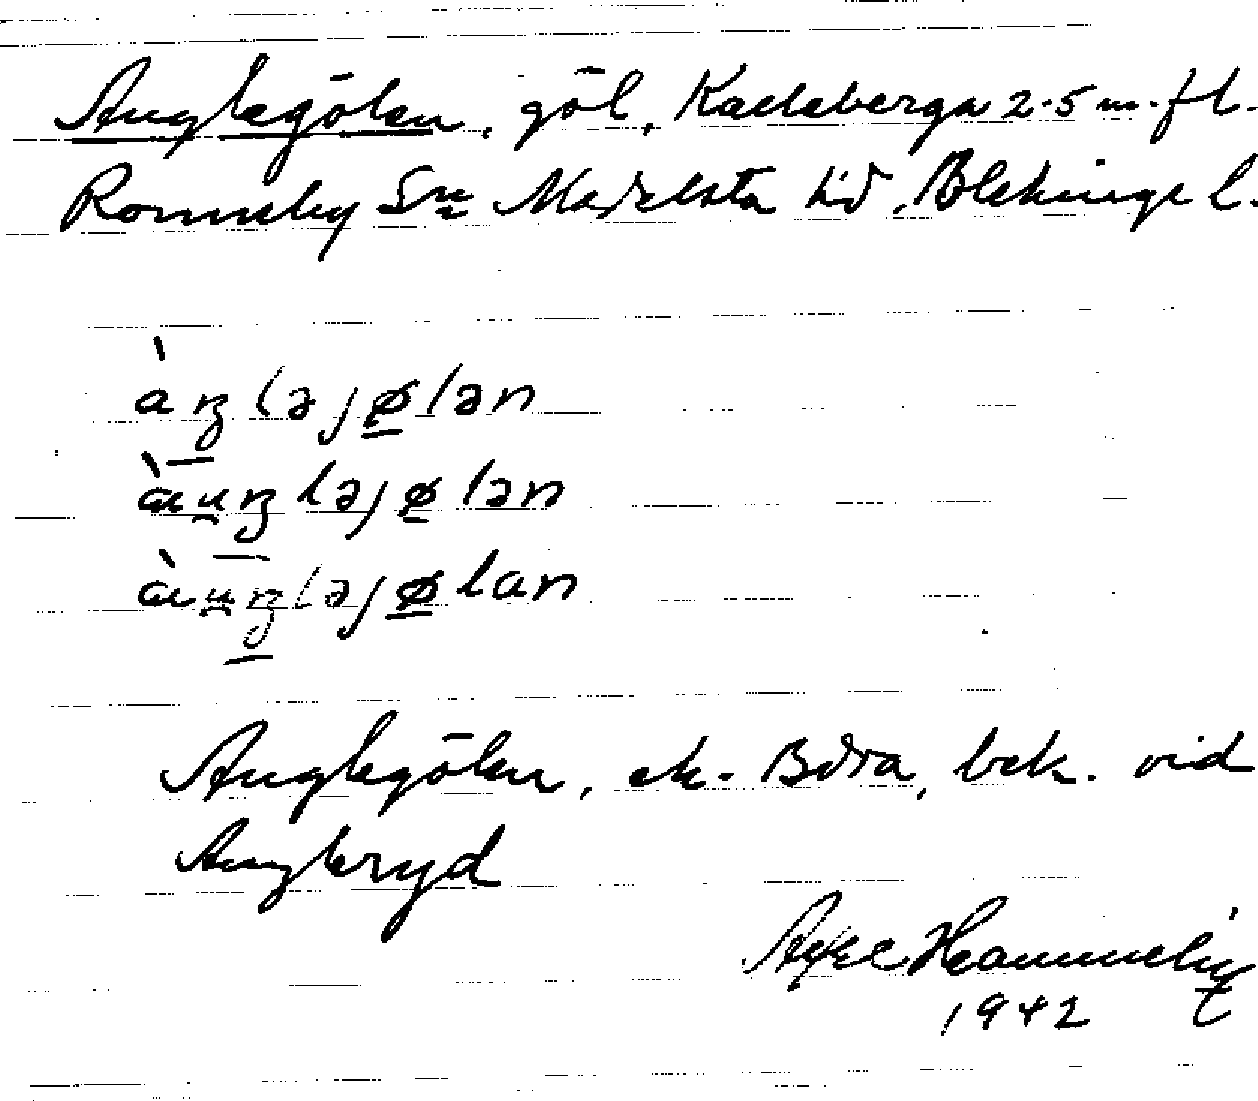 Anglegölen, göl, Kalleberga 2-5 m. fl.
Ronneby Sn Medelsta hd, Blekinge l.
àŋləjølən
àuŋləjølən
àuŋləjølan
Anglegölen, ek. Böra, bek. vid
Angleryd
Axel
1942